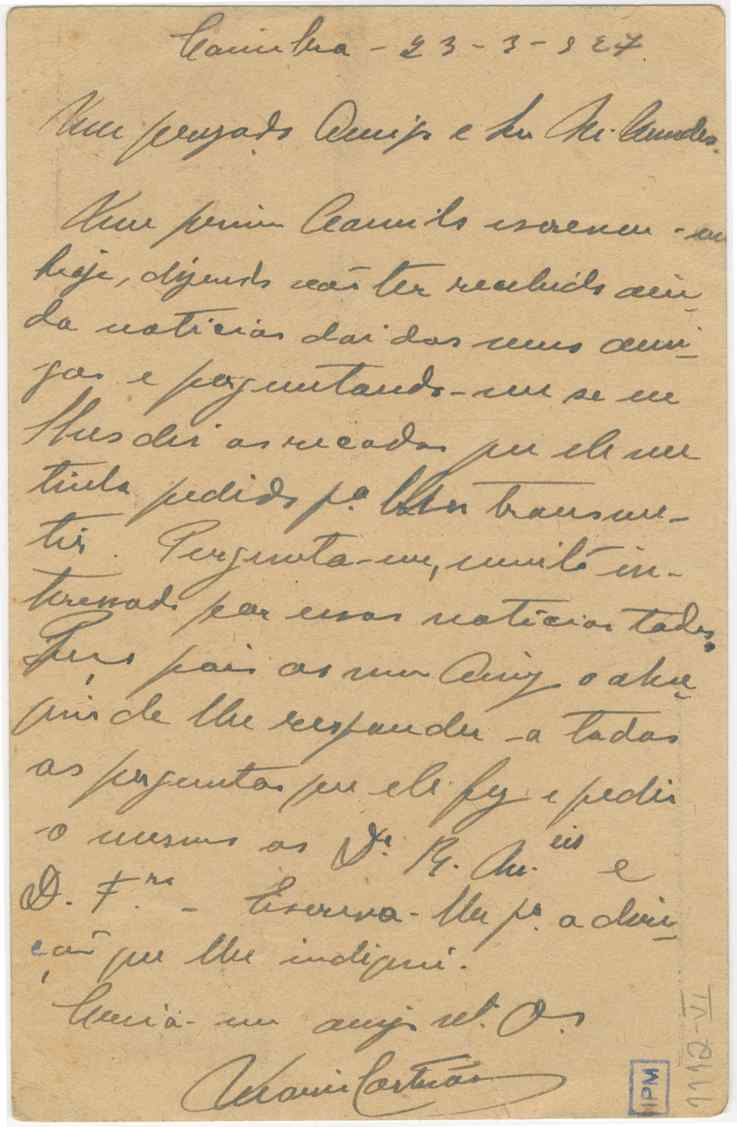 Coimbra - 23-3-927.
Meu prezado Amigo e Sr. M. Guedes.
Meu primo Camilo escreveu-me
hoje, dizendo não ter recebido ain-
da noticias daí dos seus ami-
gos e perguntando-me se eu
lhes dei os recados que ele me
tinha pedido pª. lhes transme-
tir. Pergunta-me, muito in-
teressado por essas noticias todas.
Peço pois ao meu Amigo o obse-
quio de lhe responder a todas
as perguntas que ele fez e pedir
o mesmo ao Dr. R. M.eis e
D. F.co - Escreva-lhe pª. a direc-
ção que lhe indiquei.
Creia-me amigo
Mario Castro
IPM
1112-VI